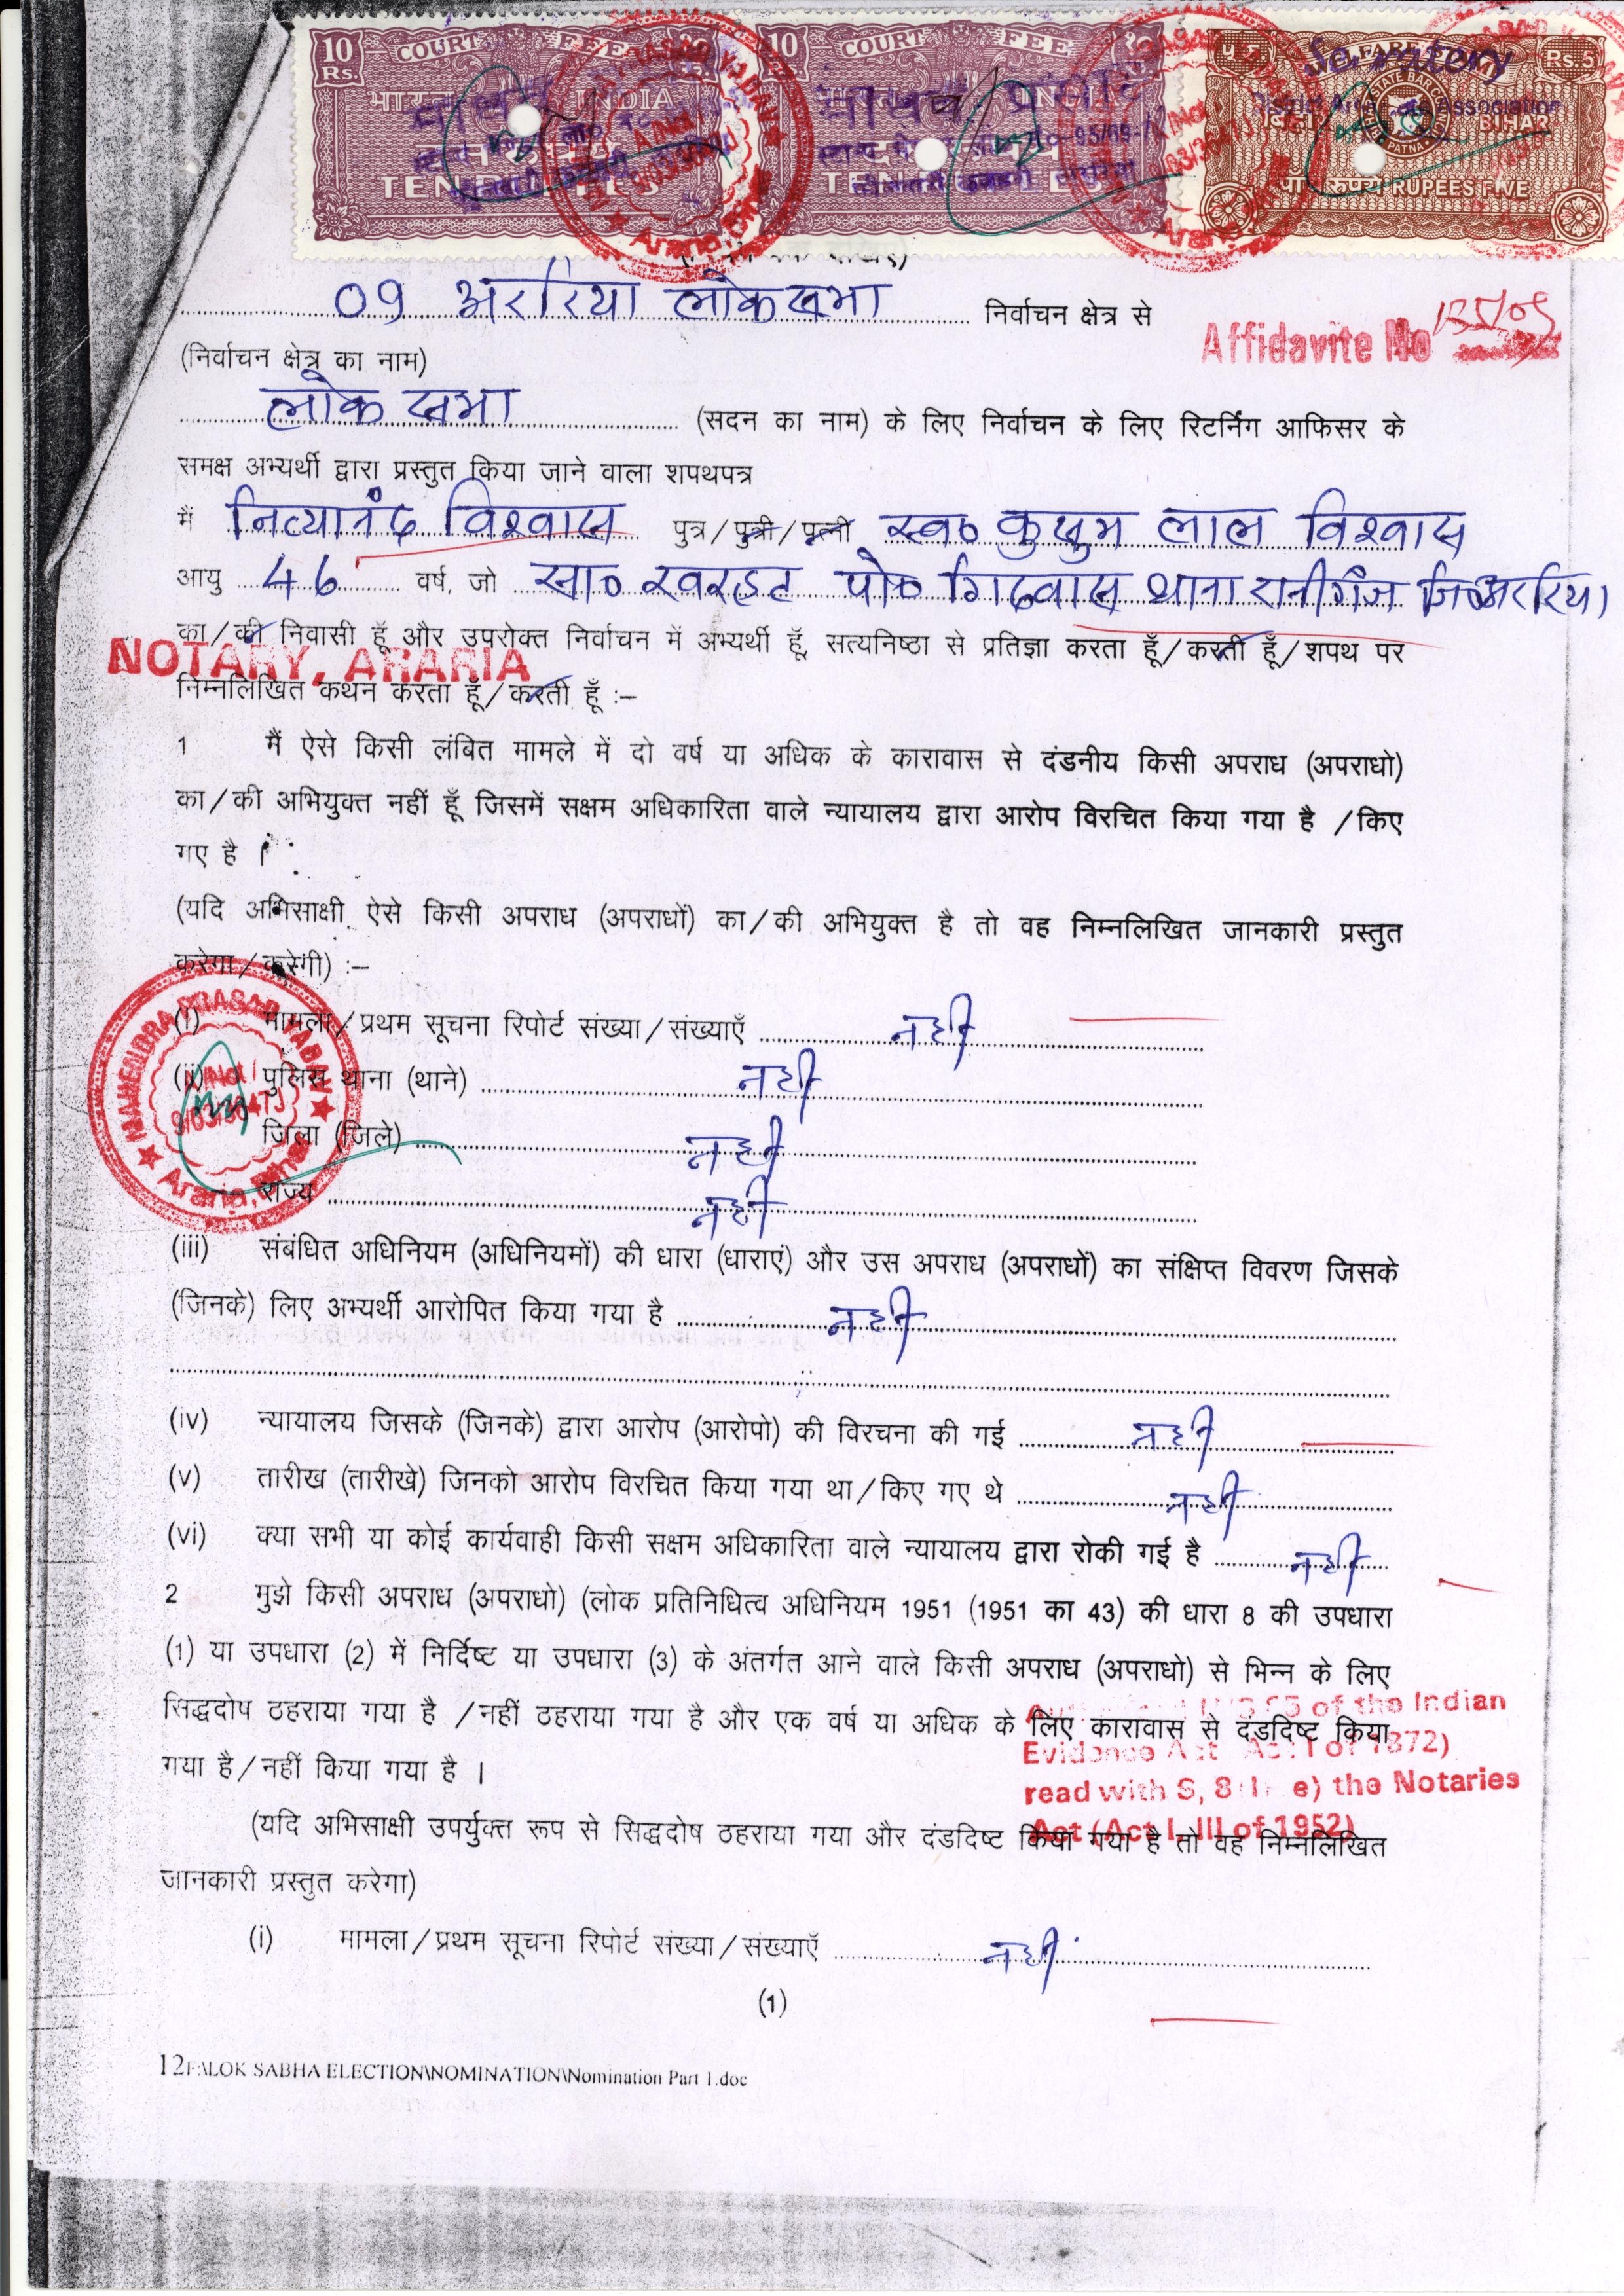 10 COURT FEE 10 COURT FEE Rs.5
Rs.
भारत INDIA
TEN RUPEES
BIHAR
PATNA
पाँच रुपये RUPEES FIVE
09 अररिया लोकसभा निर्वाचन क्षेत्र से
Affidavite No
(निर्वाचन क्षेत्र का नाम)
लोक सभा (सदन का नाम) के लिए निर्वाचन के लिए रिटर्निंग आफिसर के
समक्ष अभ्यर्थी द्वारा प्रस्तुत किया जाने वाला शपथपत्र
मैं नित्यानंद विश्वास पुत्र/पुत्री/पत्नी स्व० कुसुम लाल विश्वास
आयु 46 वर्ष, जो सा० खरहट पो० गिदवास थाना रानीगंज जि०अररिया
का/की निवासी हूँ और उपरोक्त निर्वाचन में अभ्यर्थी हूँ, सत्यनिष्ठा से प्रतिज्ञा करता हूँ/करती हूँ/शपथ पर
NOTARY, ARARIA
निम्नलिखित कथन करता हूँ/करती हूँ :–
1 मैं ऐसे किसी लंबित मामले में दो वर्ष या अधिक के कारावास से दंडनीय किसी अपराध (अपराधो)
का/की अभियुक्त नहीं हूँ जिसमें सक्षम अधिकारिता वाले न्यायालय द्वारा आरोप विरचित किया गया है /किए
गए है ।
(यदि अभिसाक्षी ऐसे किसी अपराध (अपराधों) का/की अभियुक्त है तो वह निम्नलिखित जानकारी प्रस्तुत
करेगा/करेगी) :–
MAHENDRA PRASAD YADAV
Araria, Bihar
(i) मामला/प्रथम सूचना रिपोर्ट संख्या/संख्याएँ नही
(ii) पुलिस थाना (थाने) नही
जिला (जिले) नही
राज्य नही
(iii) संबंधित अधिनियम (अधिनियमों) की धारा (धाराएं) और उस अपराध (अपराधों) का संक्षिप्त विवरण जिसके
(जिनके) लिए अभ्यर्थी आरोपित किया गया है नही
(iv) न्यायालय जिसके (जिनके) द्वारा आरोप (आरोपो) की विरचना की गई नही
(v) तारीख (तारीखे) जिनको आरोप विरचित किया गया था/किए गए थे नही
(vi) क्या सभी या कोई कार्यवाही किसी सक्षम अधिकारिता वाले न्यायालय द्वारा रोकी गई है नही
2 मुझे किसी अपराध (अपराधो) (लोक प्रतिनिधित्व अधिनियम 1951 (1951 का 43) की धारा 8 की उपधारा
(1) या उपधारा (2) में निर्दिष्ट या उपधारा (3) के अंतर्गत आने वाले किसी अपराध (अपराधो) से भिन्न के लिए
सिद्धदोष ठहराया गया है /नहीं ठहराया गया है और एक वर्ष या अधिक के लिए कारावास से दंडदिष्ट किया
गया है/नहीं किया गया है ।
of the Indian
Evidence Act 1872)
read with S, 8 e) the Notaries
Act (Act L III of 1952)
(यदि अभिसाक्षी उपर्युक्त रूप से सिद्धदोष ठहराया गया और दंडदिष्ट किया गया है तो वह निम्नलिखित
जानकारी प्रस्तुत करेगा)
(i) मामला/प्रथम सूचना रिपोर्ट संख्या/संख्याएँ नही
(1)
12F:\LOK SABHA ELECTION\NOMINATION\Nomination Part 1.doc